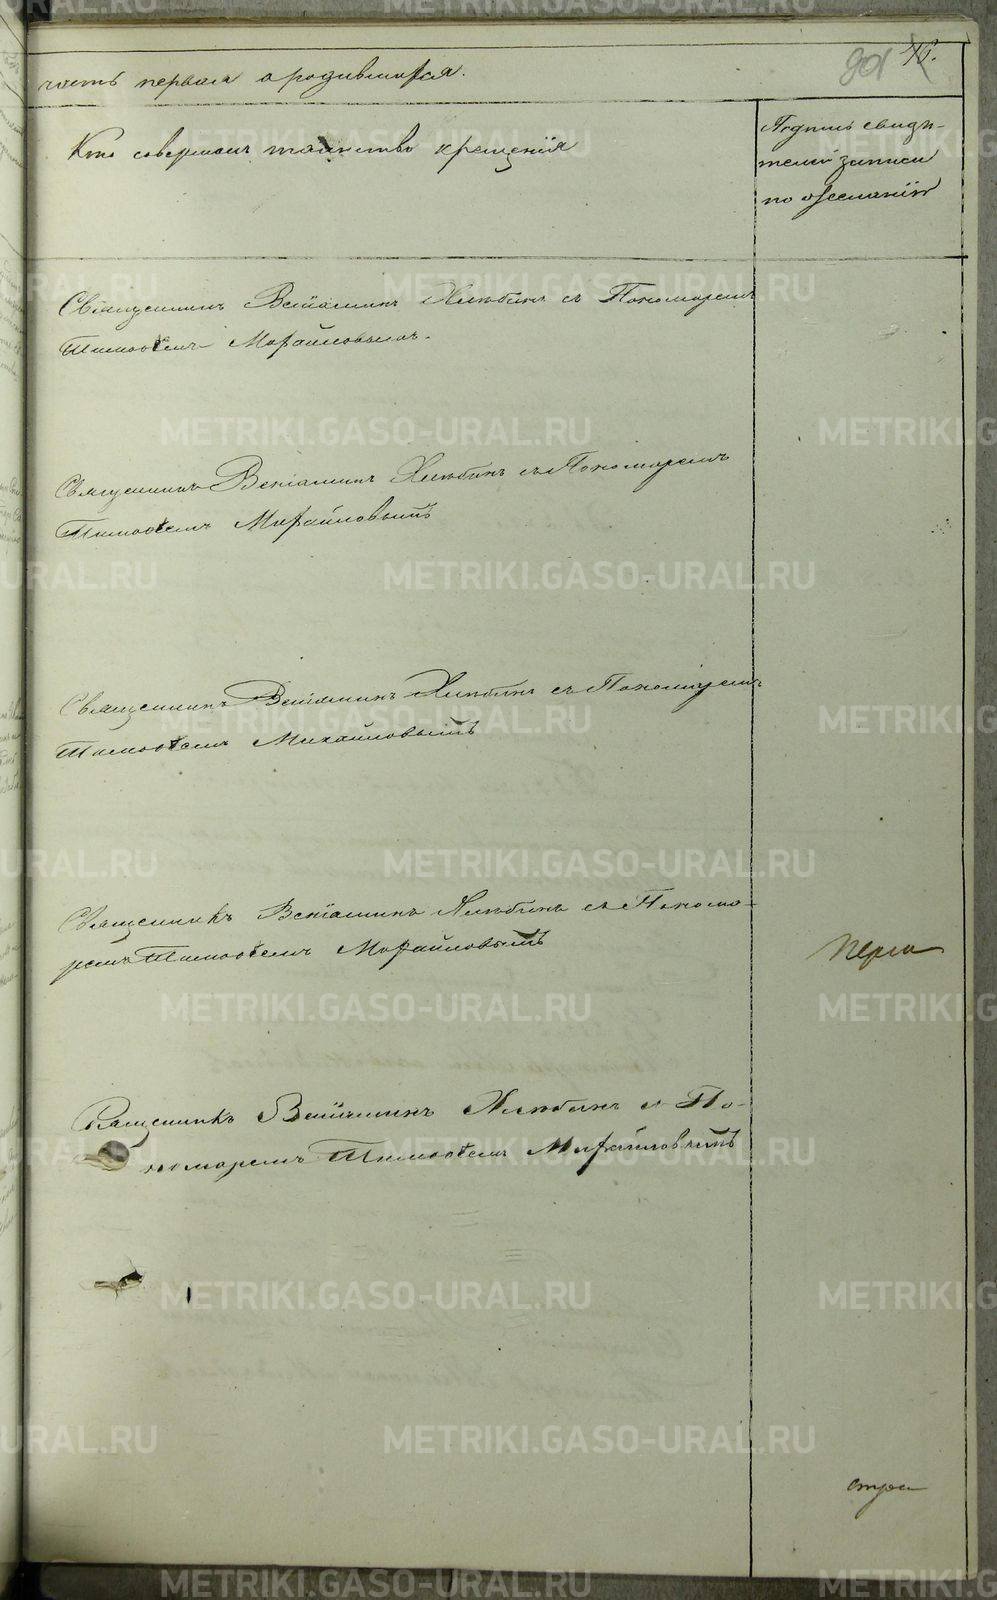 часть первая о родившихся.
801 46.
Кто совершалъ таинство крещенія
Подпись свидѣ-
телей записи
по желанію
Священникъ Веніаминъ Хлѣбинъ съ Пономаремъ
Тимоѳеемъ Михайловымъ.
Священникъ Веніаминъ Хлѣбинъ съ Пономаремъ
Тимоѳеемъ Михайловымъ
Священникъ Веніаминъ Хлѣбинъ съ Пономаремъ
Тимоѳеемъ Михайловымъ
Священникъ Веніаминъ Хлѣбинъ съ Понома-
ремъ Тимоѳеемъ Михайловымъ
Священникъ Веніаминъ Хлѣбинъ съ По-
номаремъ Тимоѳеемъ Михайловымъ
METRIKI.GASO-URAL.RU